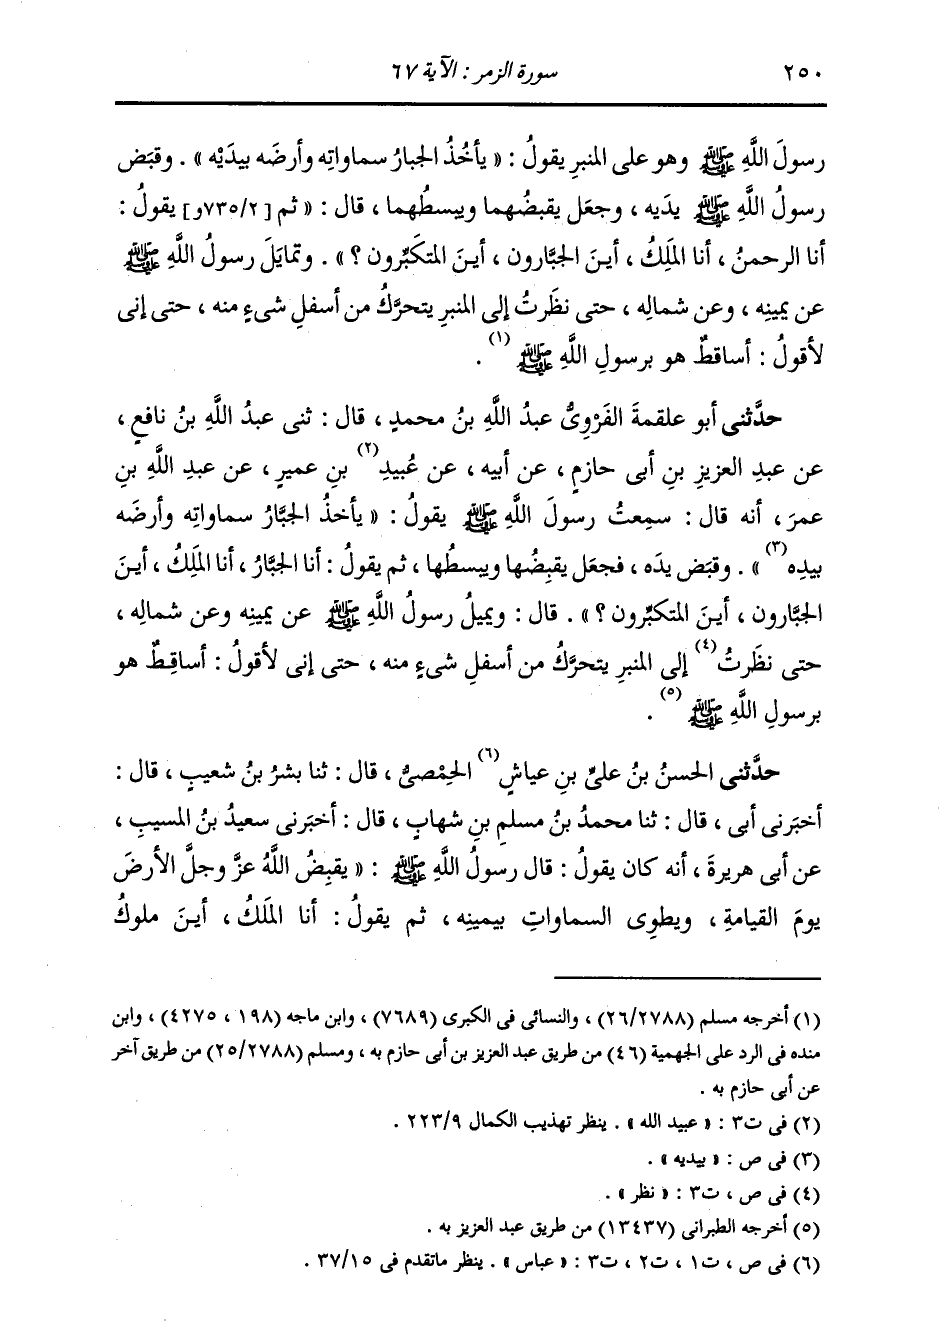 ٢٥٠
سورة الزمر : الآية ٦٧
رسولَ اللَّهِ ﷺ وهو على المنبرِ يقولُ : « يأخُذُ الجبارُ سماواتِه وأرضَه بيدَيْه » . وقبَض
رسولُ اللَّهِ ﷺ يدَيه ، وجعَل يقبضُهما ويبسطُهما ، قال : « ثم [٧٣٥/٢و] يقولُ :
أنا الرحمنُ ، أنا الملِكُ ، أينَ الجبَّارون ، أينَ المتكَبِّرون ؟ » . وتمايَلَ رسولُ اللَّهِ ﷺ
عن يمينِه ، وعن شمالِه ، حتى نظَرتُ إلى المنبرِ يتحرَّكُ من أسفلِ شىءٍ منه ، حتى إنى
لأقولُ : أساقطٌ هو برسولِ اللَّهِ ﷺ (١) .
حدَّثنى أبو علقمةَ الفَرْوِىُّ عبدُ اللَّهِ بنُ محمدٍ ، قال : ثنى عبدُ اللَّهِ بنُ نافعٍ ،
عن عبدِ العزيزِ بنِ أبى حازمٍ ، عن أبيه ، عن عُبيدِ (٢) بنِ عميرٍ ، عن عبدِ اللَّهِ بنِ
عمرَ ، أنه قال : سمِعتُ رسولَ اللَّهِ ﷺ يقولُ : « يأخذُ الجبَّارُ سماواتِه وأرضَه
بيدِه (٣) » . وقبَض يدَه ، فجعَل يقبِضُها ويبسطُها ، ثم يقولُ : أنا الجبَّارُ ، أنا الملِكُ ، أينَ
الجبَّارون ، أينَ المتكبِّرون ؟ » . قال : ويميلُ رسولُ اللَّهِ ﷺ عن يمينِه وعن شمالِه ،
حتى نظَرتُ (٤) إلى المنبرِ يتحرَّكُ من أسفلِ شىءٍ منه ، حتى إنى لأقولُ : أساقِطٌ هو
برسولِ اللَّهِ ﷺ (٥) .
حدَّثنى الحسنُ بنُ علىِّ بنِ عياشٍ (٦) الحِمْصىُّ ، قال : ثنا بشرُ بنُ شعيبٍ ، قال :
أخبَرنى أبى ، قال : ثنا محمدُ بنُ مسلمِ بنِ شهابٍ ، قال : أخبَرنى سعيدُ بنُ المسيبِ ،
عن أبى هريرةَ ، أنه كان يقولُ : قال رسولُ اللَّهِ ﷺ : « يقبِضُ اللَّهُ عزَّ وجلَّ الأرضَ
يومَ القيامةِ ، ويطوِى السماواتِ بيمينِه ، ثم يقولُ : أنا الملَكُ ، أينَ ملوكُ
(١) أخرجه مسلم (٢٦/٢٧٨٨) ، والنسائى فى الكبرى (٧٦٨٩) ، وابن ماجه (١٩٨ ، ٤٢٧٥) ، وابن
منده فى الرد على الجهمية (٤٦) من طريق عبد العزيز بن أبى حازم به ، ومسلم (٢٥/٢٧٨٨) من طريق آخر
عن أبى حازم به .
(٢) فى ت٣ : « عبيد الله » . ينظر تهذيب الكمال ٢٢٣/٩ .
(٣) فى ص : « بيديه » .
(٤) فى ص ، ت٣ : « نظر » .
(٥) أخرجه الطبرانى (١٣٤٣٧) من طريق عبد العزيز به .
(٦) فى ص ، ت١ ، ت٢ ، ت٣ : « عباس » . ينظر ماتقدم فى ٣٧/١٥ .